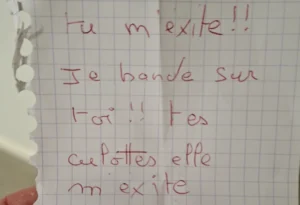 tu m'exite!!
Je bande sur
toi!! tes
culottes elle
m'exite